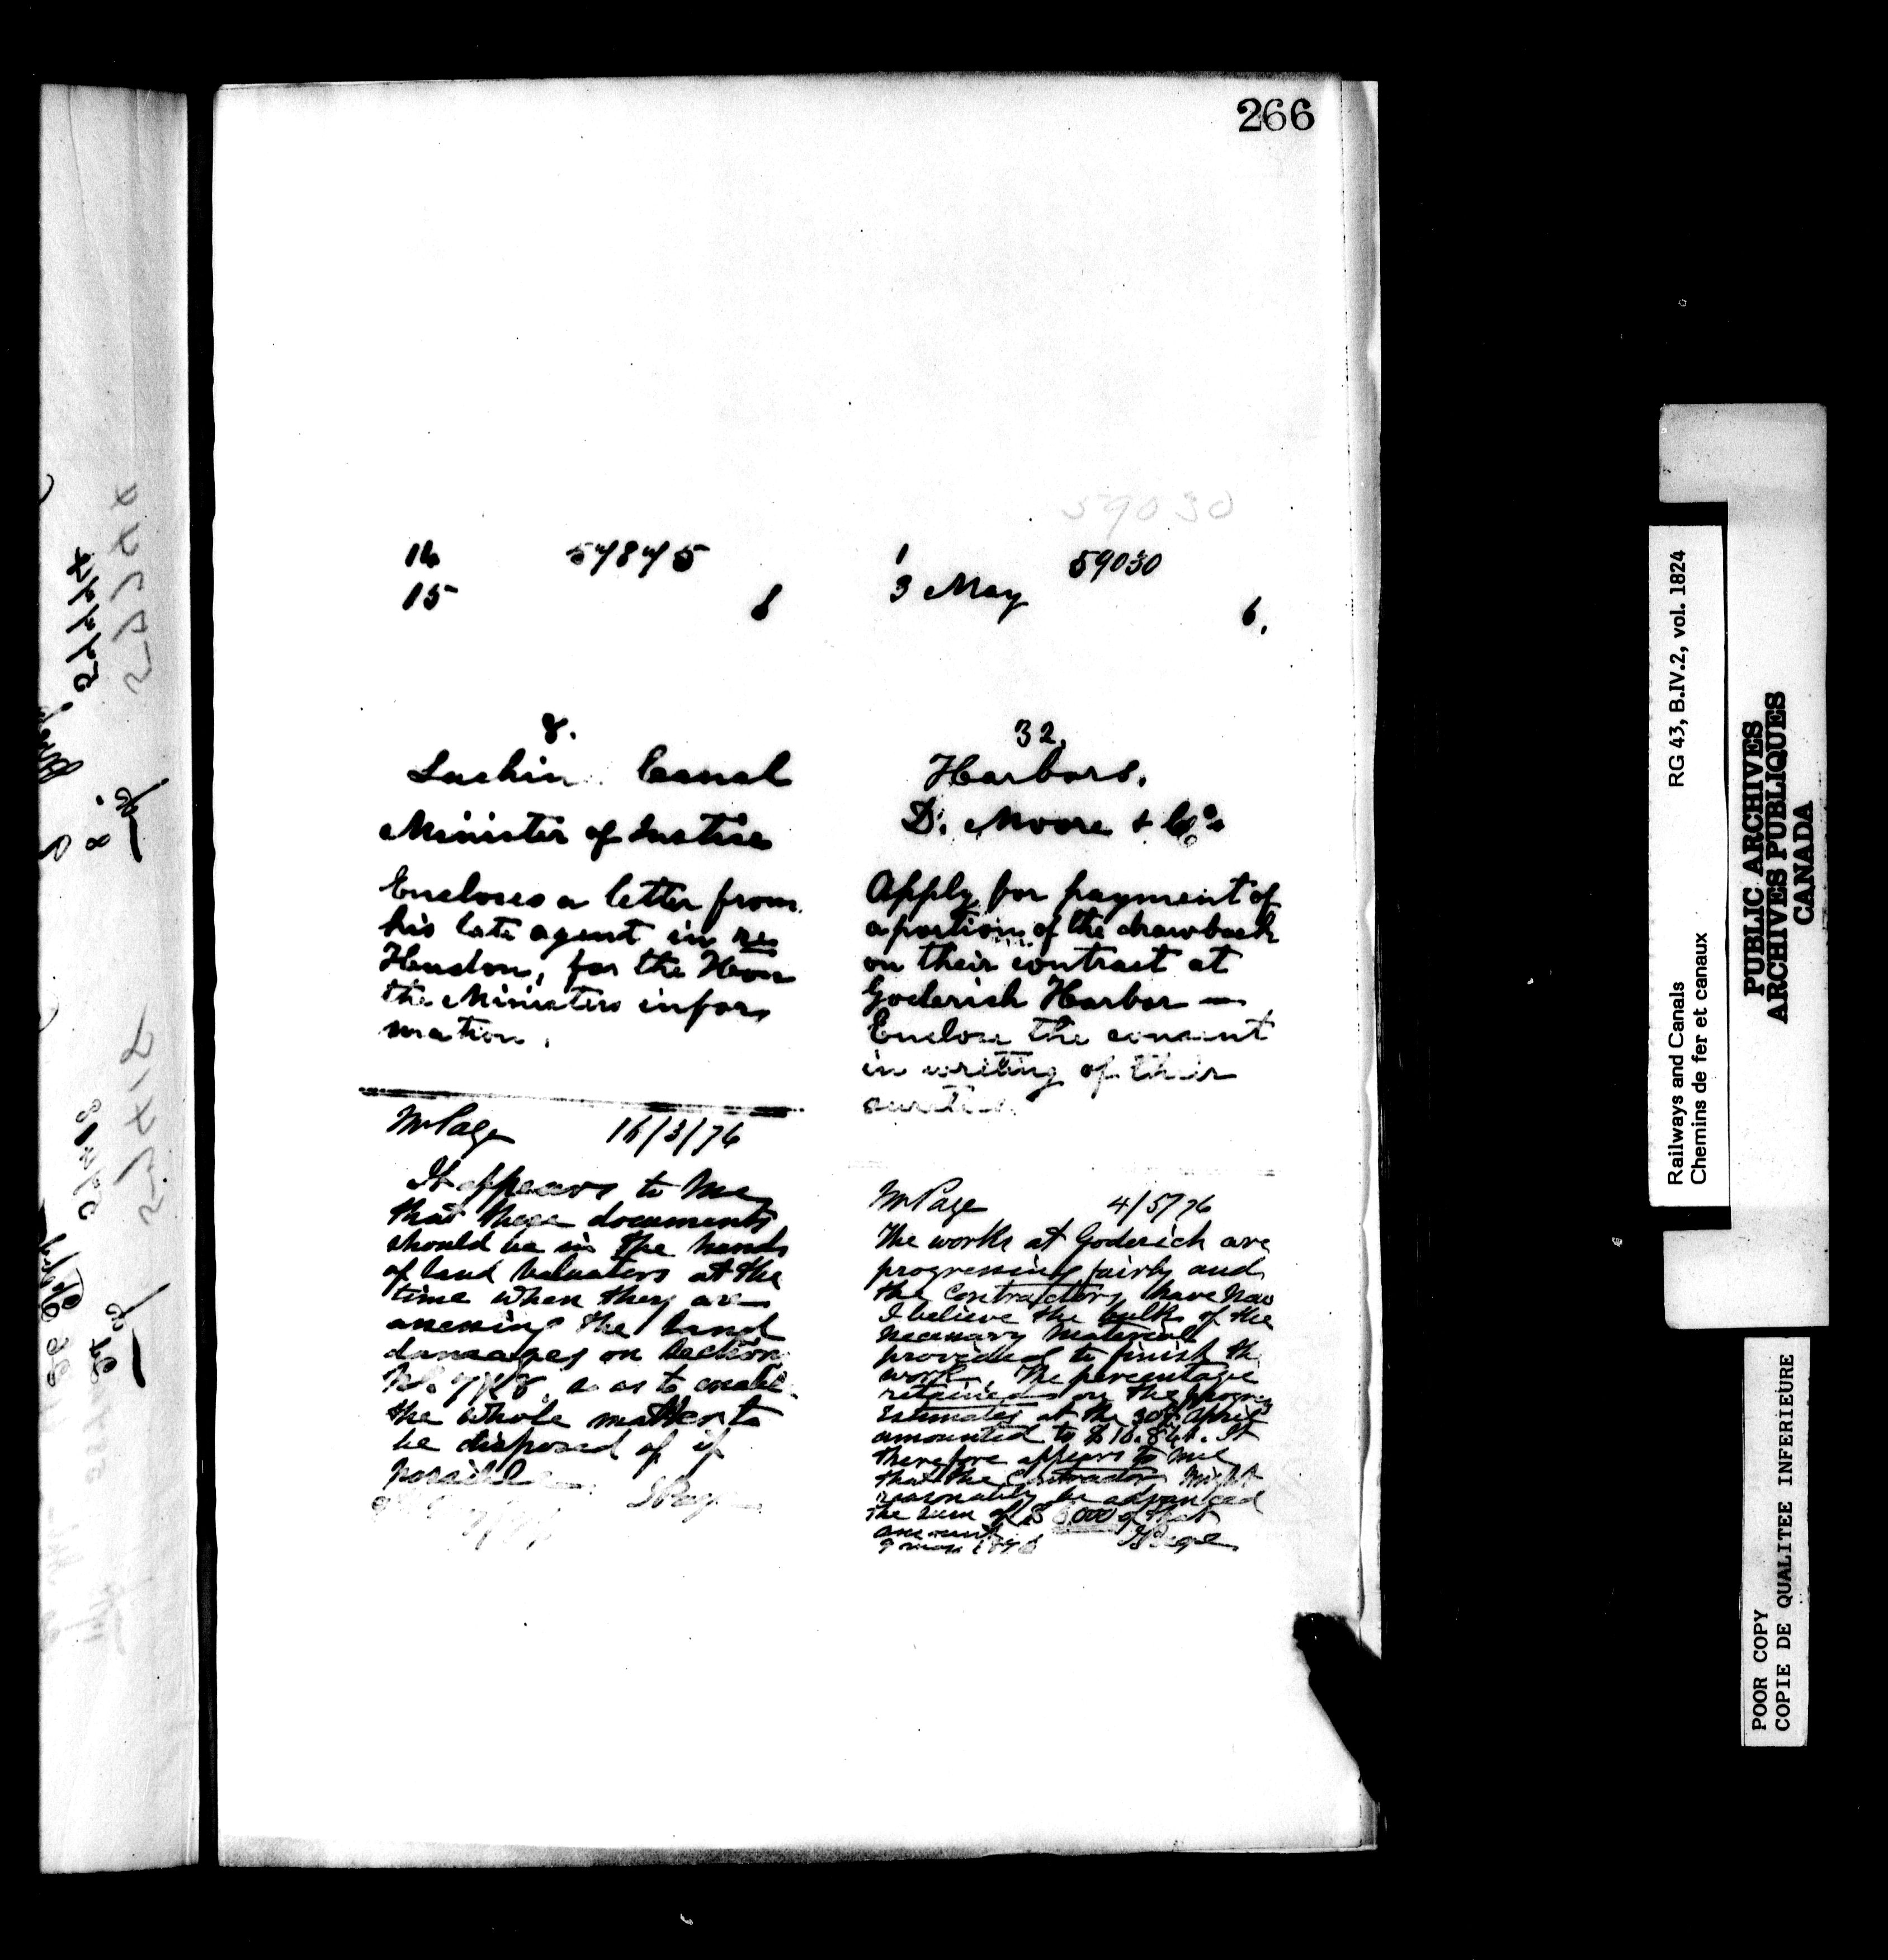 266
59030
16 57875
15 6
8.
Lachine Canal
Minister of Justice
Encloses a letter from
his late agent in re
for the Hon
the Ministers infor
mation.
Mr Page 16/3/76
It appears to me
that these documents
should be in the hands
of land valuators at the
time when they are
assessing the land
damages on Section
No. 7 & 8, so as to enable
the whole matter to
be disposed of if
possible
JPage
1 59030
3 May 6.
32.
Harbors.
D. Moore & Co.
Apply for payment of
a portion of the drawback
on their contract at
Goderich Harbor —
Enclose the consent
in writing of their
sureties.
Mr Page 4/5/76
The works at Goderich are
progressing fairly and
the Contractors have now
I believe the bulk of the
necessary material
provided to finish the
work. The percentage
retained on the progress
Estimates at the 30th April
amounted to It
therefore appears to me
that the Contractors might
reasonably be advanced
the sum of of that
amount
9 may 1876 JPage
Railways and Canals RG 43, B.IV.2, vol. 1824
Chemins de fer et canaux
PUBLIC ARCHIVES
ARCHIVES PUBLIQUES
CANADA
POOR COPY
COPIE DE QUALITEE INFERIEURE